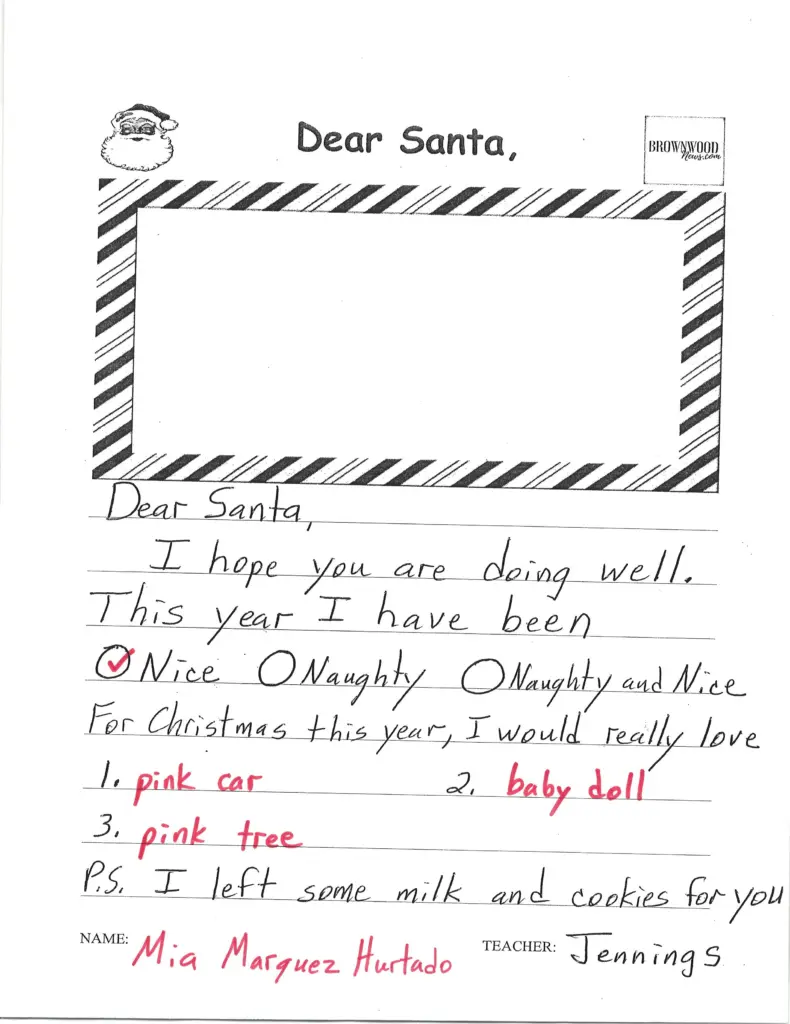 Dear Santa,
BROWNWOOD
News.com
Dear Santa,
I hope you are doing well.
This year I have been
Nice Naughty Naughty and Nice
For Christmas this year, I would really love
1. pink car 2. baby doll
3. pink tree
P.S. I left some milk and cookies for you
NAME: Mia Marquez Hurtado TEACHER: Jennings